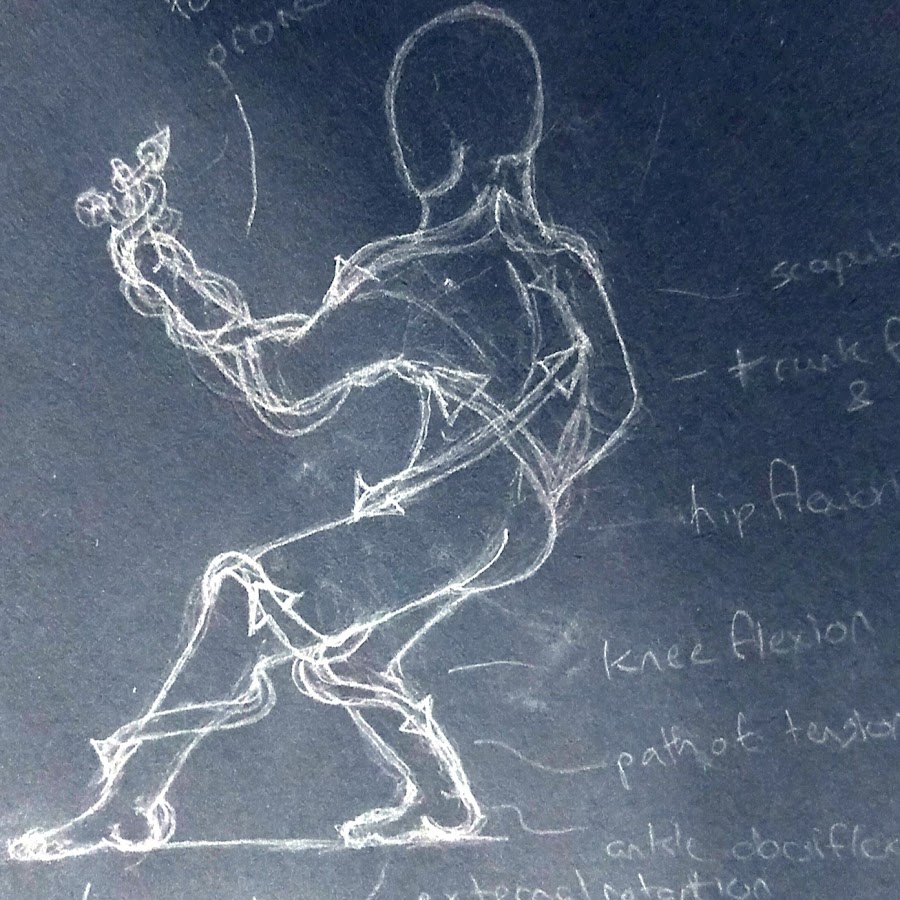 prone
scapul
trunk f
&
hip flexion
knee flexion
path of tension
ankle dorsiflex
external rotation